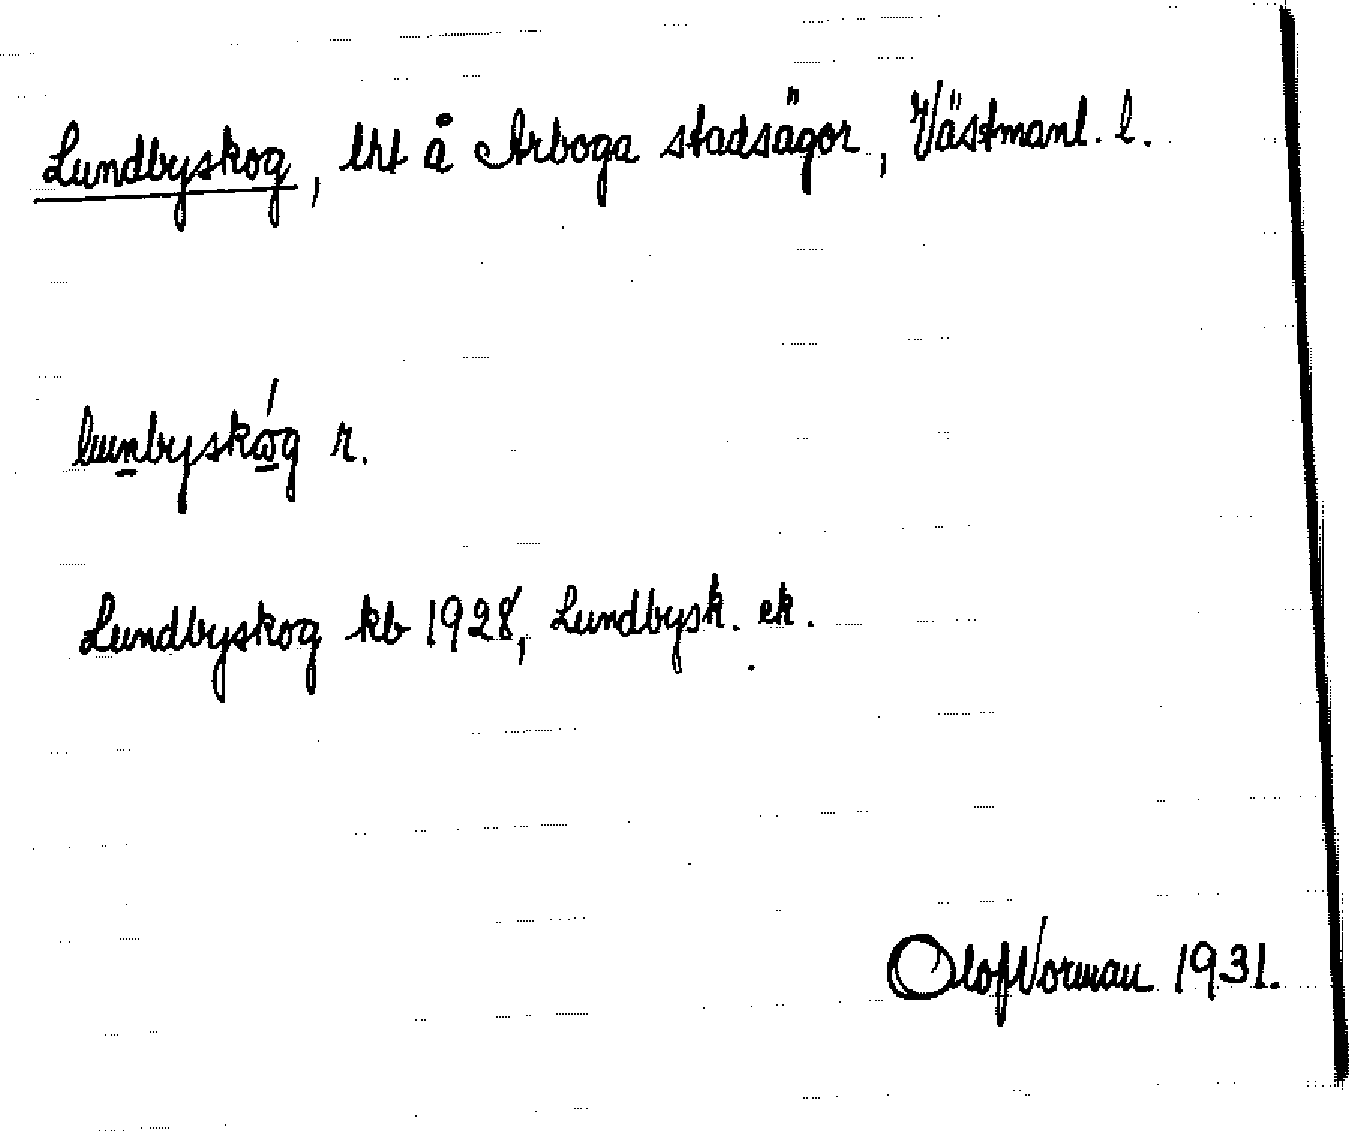 Lundbyskog, lht å Arboga stadsägor, Västmanl. l.
lunbyskóg r.
Lundbyskog kb 1928, Lundbysk. ek.
Olof Norman 1931.